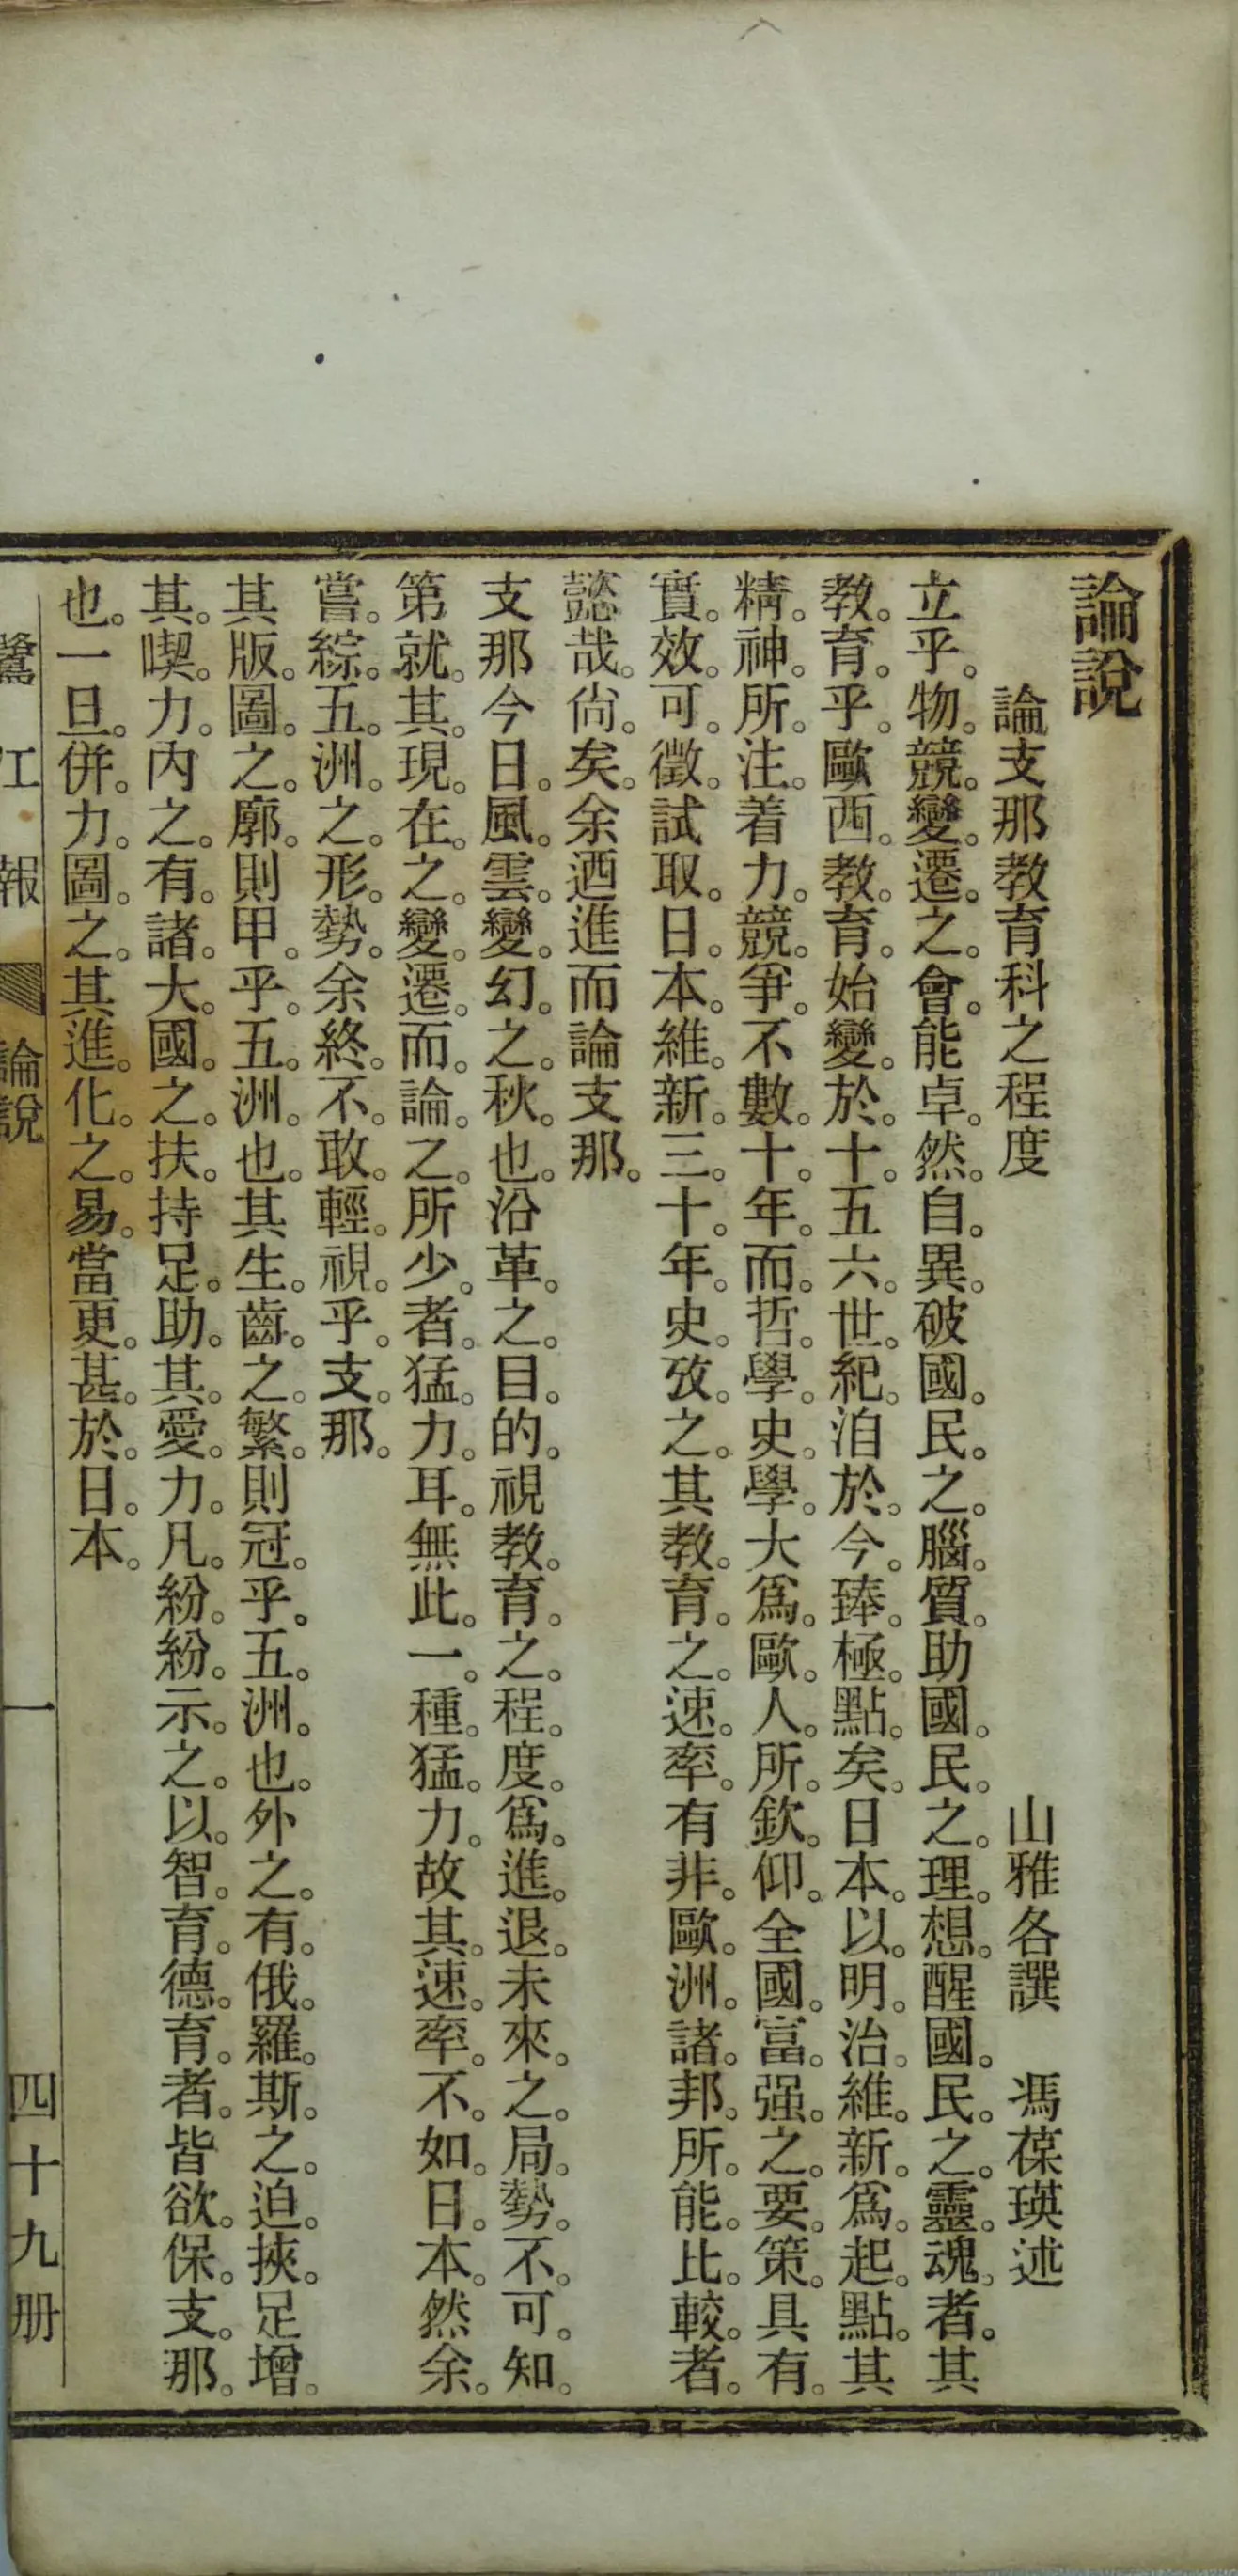 論說
論支那教育科之程度 山雅各譔 馮葆瑛述
立乎。物。競。變。遷。之。會。能卓。然。自。異。破國。民。之。腦。質。助國。民。之。理。想。醒國。民。之。靈。魂。者。其
教。育。乎。歐西。教。育。始變。於。十。五六。世。紀。洎於。今。臻。極。點。矣。日本。以。明。治。維。新。爲。起。點。其
精。神。所。注。着力。競。爭。不數。十。年。而。哲。學。史。學。大爲。歐。人。所。欽。仰。全國。富。强。之。要。策。具有。
實。效。可。徵。試取。日。本。維。新。三。十。年。史。攷。之。其教。育。之。速。率。有非。歐。洲。諸。邦。所。能。比。較。者。
懿哉。尙。矣。余迺進而論支那。
支那今日。風。雲。變。幻。之。秋。也。沿革。之。目。的。視教。育。之。程。度。爲。進。退。未來。之。局。勢。不。可。知。
第就。其。現。在。之。變。遷。而。論。之。所少。者。猛。力。耳。無此。一。種。猛。力。故其。速。率。不。如。日。本。然余。
嘗。綜。五。洲。之。形。勢。余終。不。敢。輕。視。乎。支。那。
其版。圖。之。廓。則甲。乎。五。洲。也。其生。齒。之。繁。則冠。乎。五。洲。也。外之。有。俄。羅。斯。之。迫。挾。足增。
其。喫。力。內之。有。諸。大。國。之。扶。持足。助。其。愛。力。凡。紛。紛。示。之。以。智。育。德。育。者。皆欲。保。支。那。
也。一旦。併。力。圖。之。其進。化。之。易。當更。甚。於。日。本。
鷺江報 論說 一 四十九册